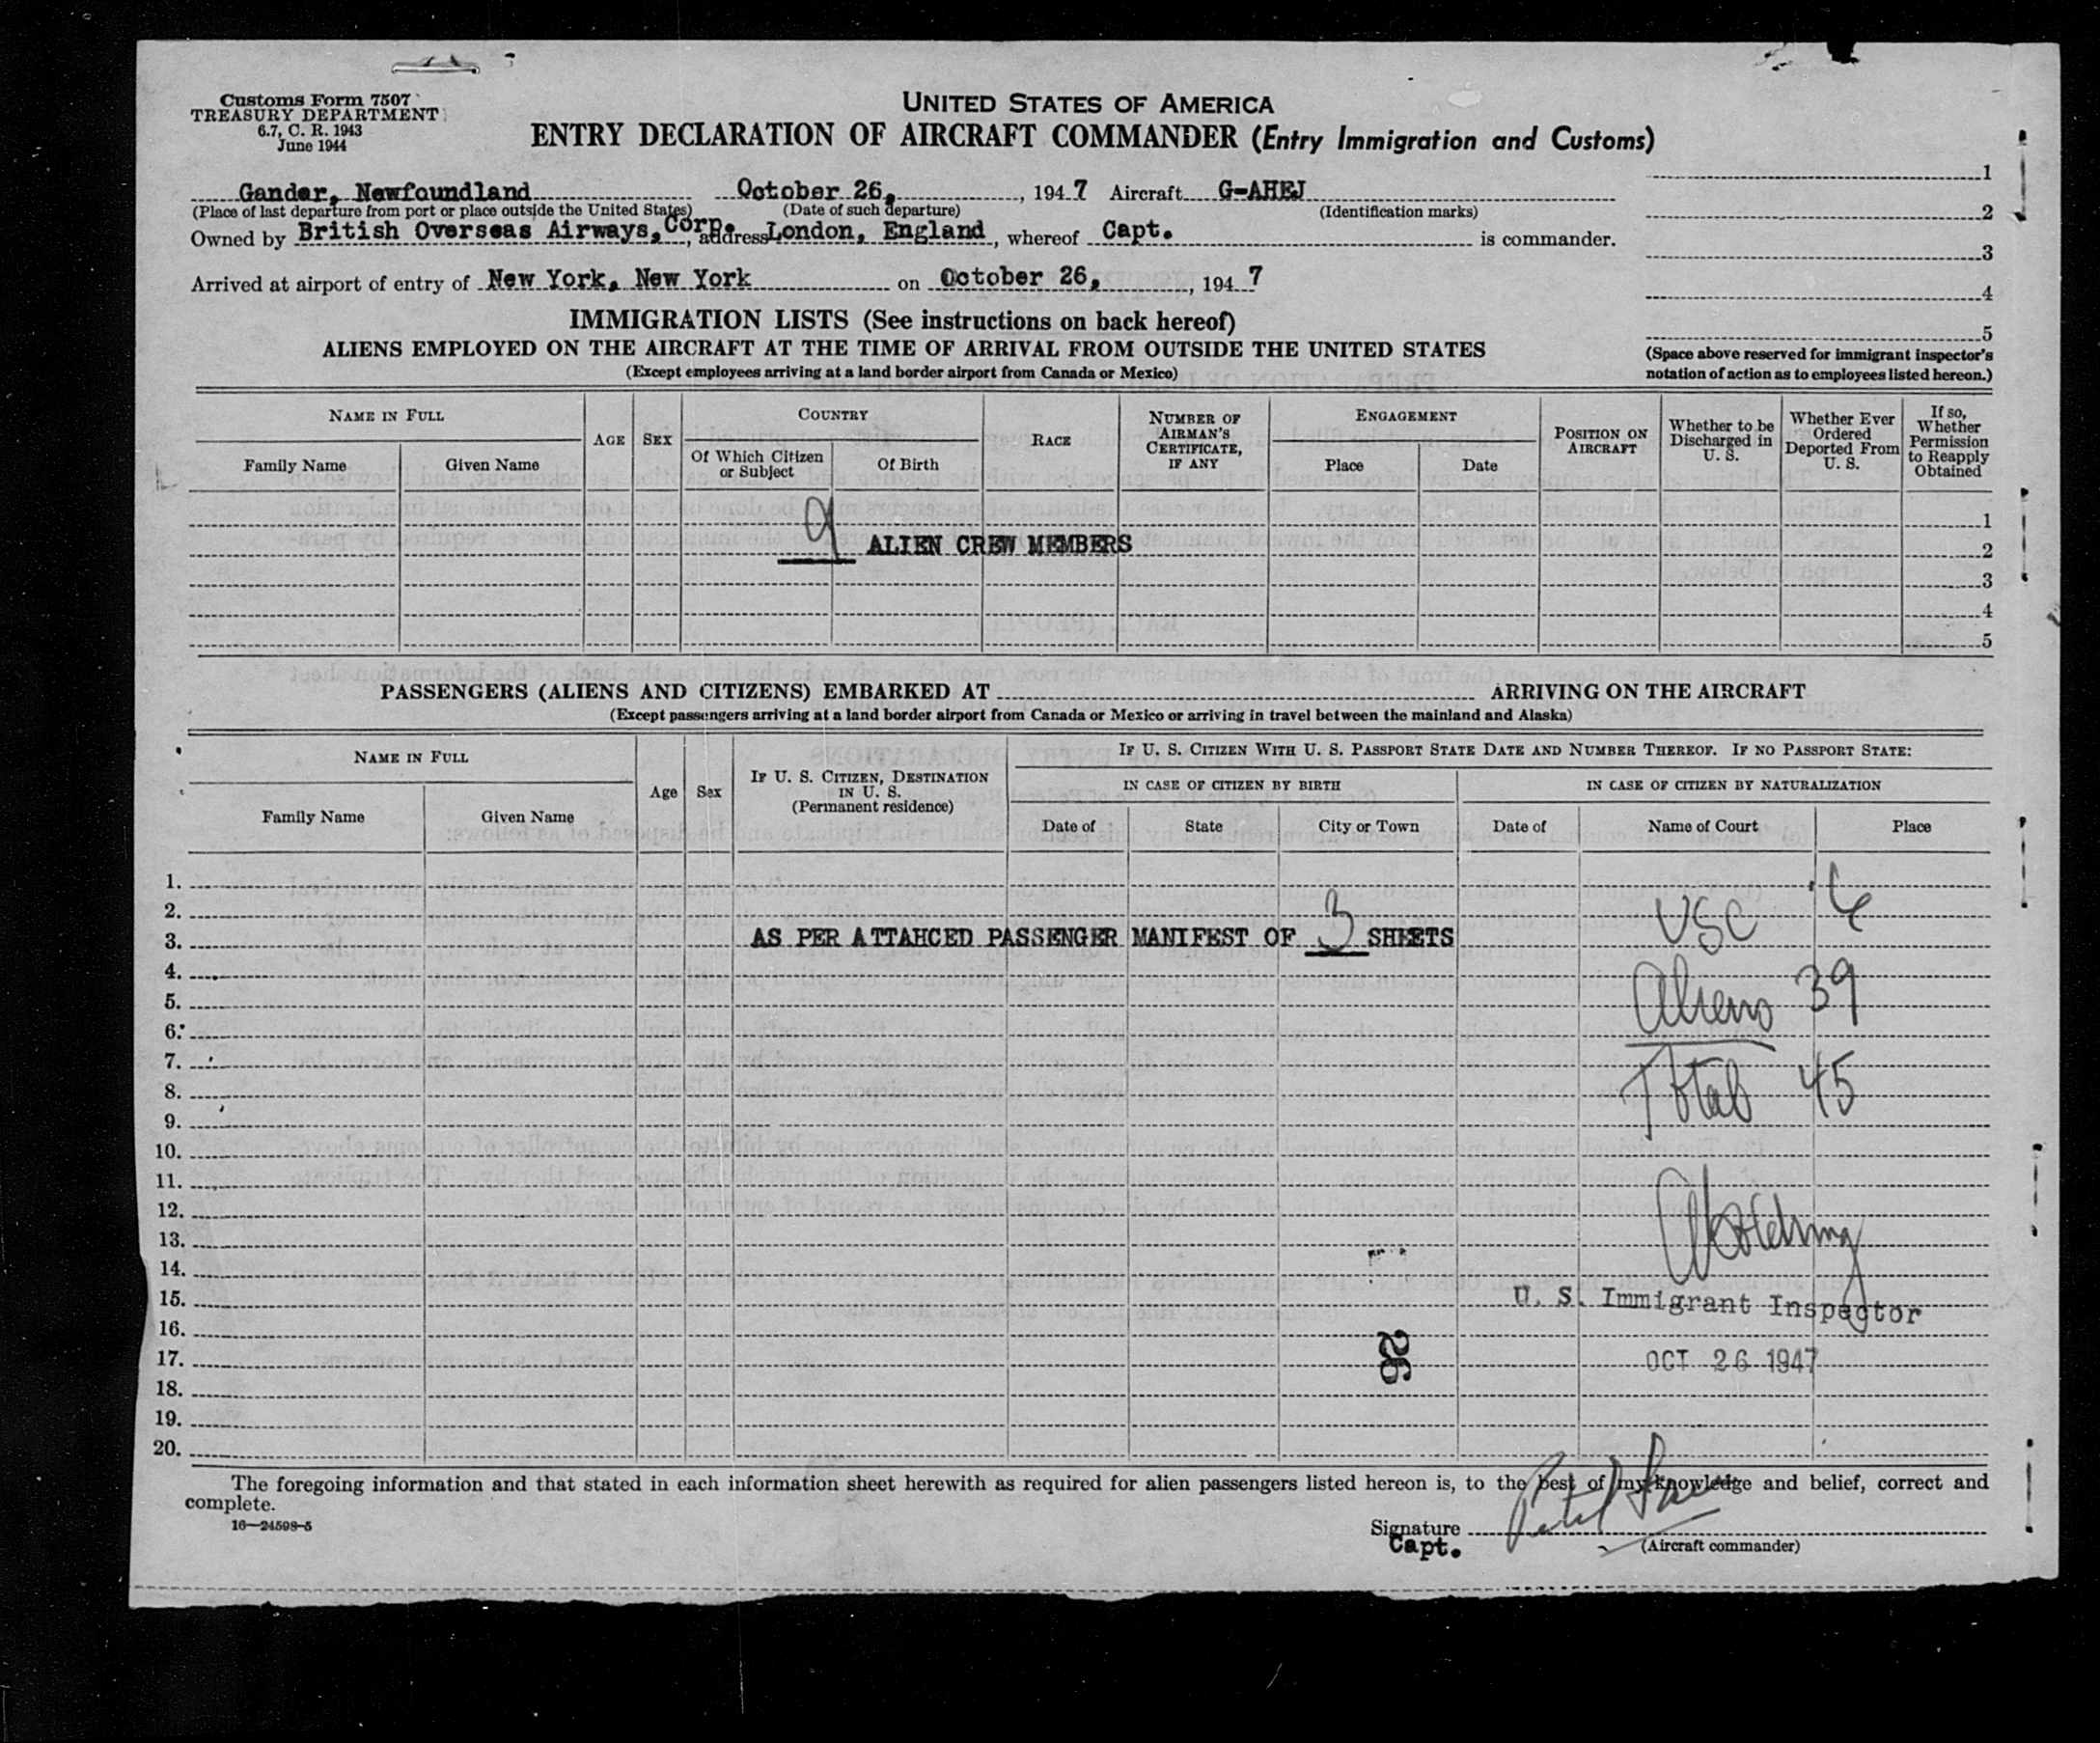 Customs Form 7507
TREASURY DEPARTMENT
6.7, C. R. 1943
June 1944
UNITED STATES OF AMERICA
ENTRY DECLARATION OF AIRCRAFT COMMANDER (Entry Immigration and Customs)
Gander, Newfoundland October 26, , 1947 Aircraft G-AHEJ
(Place of last departure from port or place outside the United States) (Date of such departure) (Identification marks)
Owned by British Overseas Airways, Corp. , address London, England , whereof Capt. is commander.
Arrived at airport of entry of New York, New York on October 26, , 1947
1
2
3
4
5
(Space above reserved for immigrant inspector's
notation of action as to employees listed hereon.)
IMMIGRATION LISTS (See instructions on back hereof)
ALIENS EMPLOYED ON THE AIRCRAFT AT THE TIME OF ARRIVAL FROM OUTSIDE THE UNITED STATES
(Except employees arriving at a land border airport from Canada or Mexico)
NAME IN FULL
Family Name Given Name
AGE SEX
COUNTRY
Of Which Citizen
or Subject
Of Birth
RACE
NUMBER OF
AIRMAN'S
CERTIFICATE,
IF ANY
ENGAGEMENT
Place Date
POSITION ON
AIRCRAFT
Whether to be
Discharged in
U. S.
Whether Ever
Ordered
Deported From
U. S.
If so,
Whether
Permission
to Reapply
Obtained
1
9 ALIEN CREW MEMBERS 2
3
4
5
PASSENGERS (ALIENS AND CITIZENS) EMBARKED AT ARRIVING ON THE AIRCRAFT
(Except passengers arriving at a land border airport from Canada or Mexico or arriving in travel between the mainland and Alaska)
NAME IN FULL
Family Name Given Name
Age Sex
IF U. S. CITIZEN, DESTINATION
IN U. S.
(Permanent residence)
IF U. S. CITIZEN WITH U. S. PASSPORT STATE DATE AND NUMBER THEREOF. IF NO PASSPORT STATE:
IN CASE OF CITIZEN BY BIRTH IN CASE OF CITIZEN BY NATURALIZATION
Date of State City or Town Date of Name of Court Place
1.
2. USC 6
3. AS PER ATTAHCED PASSENGER MANIFEST OF 3 SHEETS
4.
5. Aliens 39
6.
7.
8. Total 45
9.
10.
11.
12.
13.
14.
15. U. S. Immigrant Inspector
16.
17. 26 OCT 26 1947
18.
19.
20.
The foregoing information and that stated in each information sheet herewith as required for alien passengers listed hereon is, to the best of my knowledge and belief, correct and
complete.
16—24598-5
Signature
Capt. (Aircraft commander)